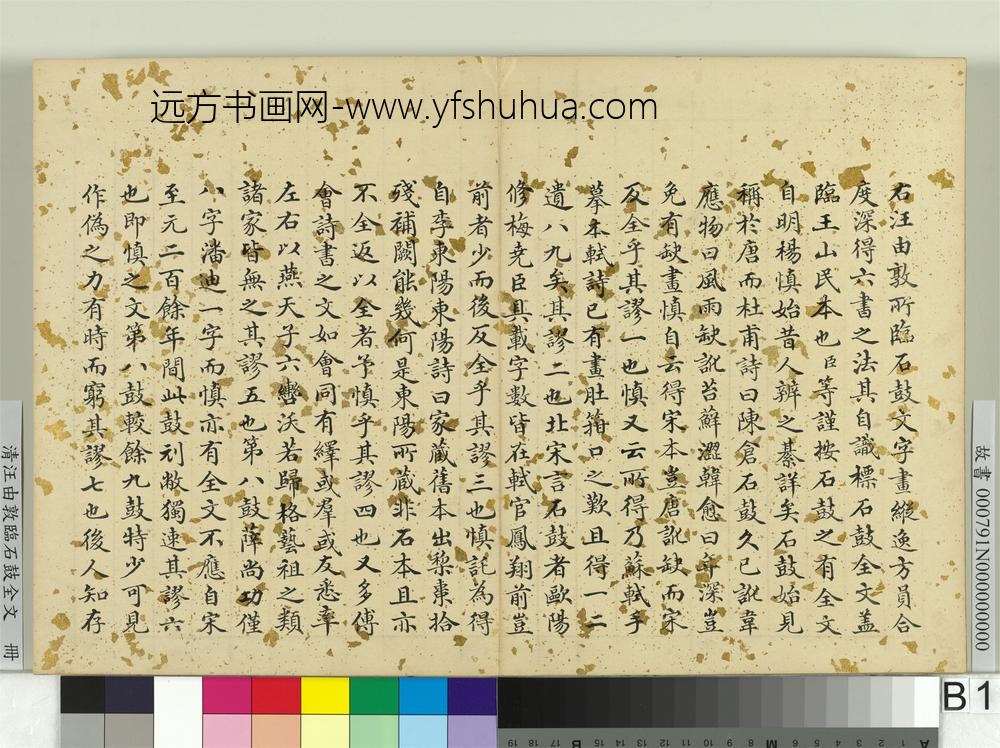 远方书画网-www.yfshuhua.com
右汪由敦所臨石鼓文字畫縱逸方員合
度深得六書之法其自識標石鼓全文蓋
臨王山民本也臣等謹按石鼓之有全文
自明楊慎始昔人辨之綦詳矣石鼓始見
稱於唐而杜甫詩曰陳倉石鼓久已訛韋
應物曰風雨缺訛苔蘚澀韓愈曰年深豈
免有缺畫慎自云得宋本豈唐訛缺而宋
反全乎其謬一也慎又云所得乃蘇軾手
摹本軾詩已有畫肚箝口之歎且得一二
遺八九矣其謬二也北宋言石鼓者歐陽
修梅堯臣具載字數皆在軾官鳳翔前豈
前者少而後反全乎其謬三也慎託為得
自李東陽東陽詩曰家藏舊本出梨棗拾
殘補闕能幾何是東陽所藏非石本且亦
不全返以全者予慎乎其謬四也又多傅
會詩書之文如會同有繹或羣或友悉率
左右以燕天子六轡沃若歸格藝祖之類
諸家皆無之其謬五也第八鼓薛尚功僅
八字潘迪一字而慎亦有全文不應自宋
至元二百餘年間此鼓刓敝獨速其謬六
也即慎之文第八鼓較餘九鼓特少可見
作偽之力有時而窮其謬七也後人知存
清汪由敦臨石鼓全文 冊
故書 000791N000000000
B 1